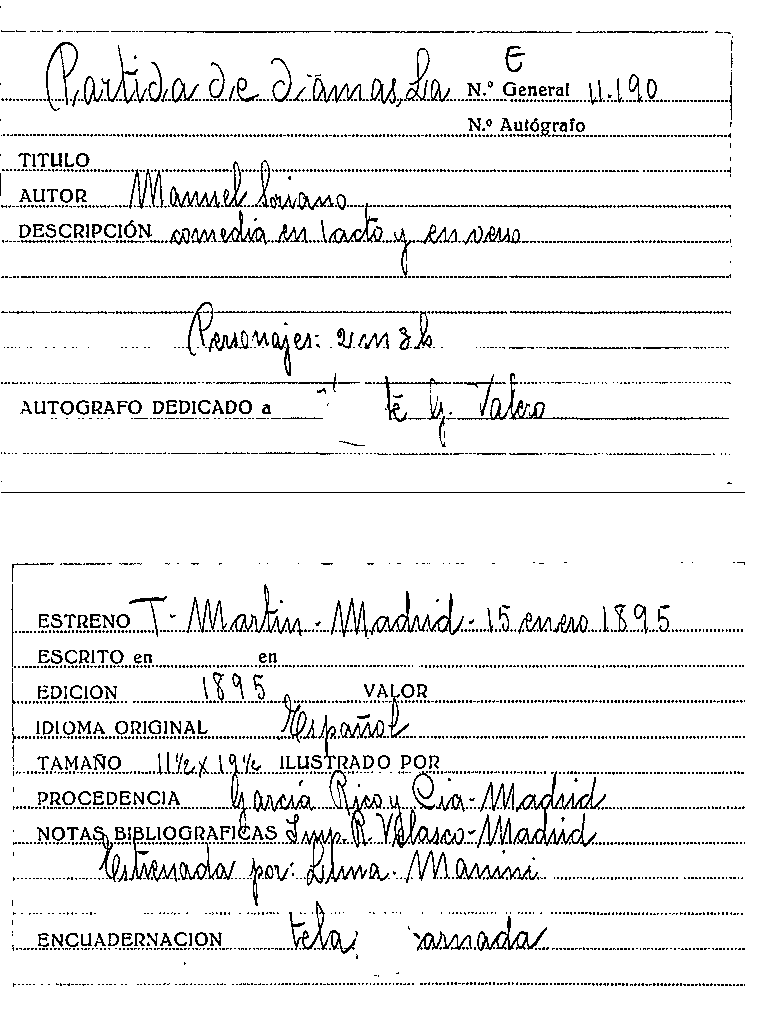 E
Partida de damas, La N.º General 11.190
N.º Autógrafo
TITULO
AUTOR Manuel Soriano
DESCRIPCIÓN comedia en 1 acto y en verso
Personajes: 2 m 3 h
AUTOGRAFO DEDICADO a G. Valero
ESTRENO T. Martin - Madrid - 15 enero 1895
ESCRITO en en
EDICION 1895 VALOR
IDIOMA ORIGINAL Español
TAMAÑO 11½ x 19½ ILUSTRADO POR
PROCEDENCIA García Rico y Cia - Madrid
NOTAS BIBLIOGRAFICAS Imp. R. Velasco - Madrid
Estrenada por: Manini
ENCUADERNACION tela